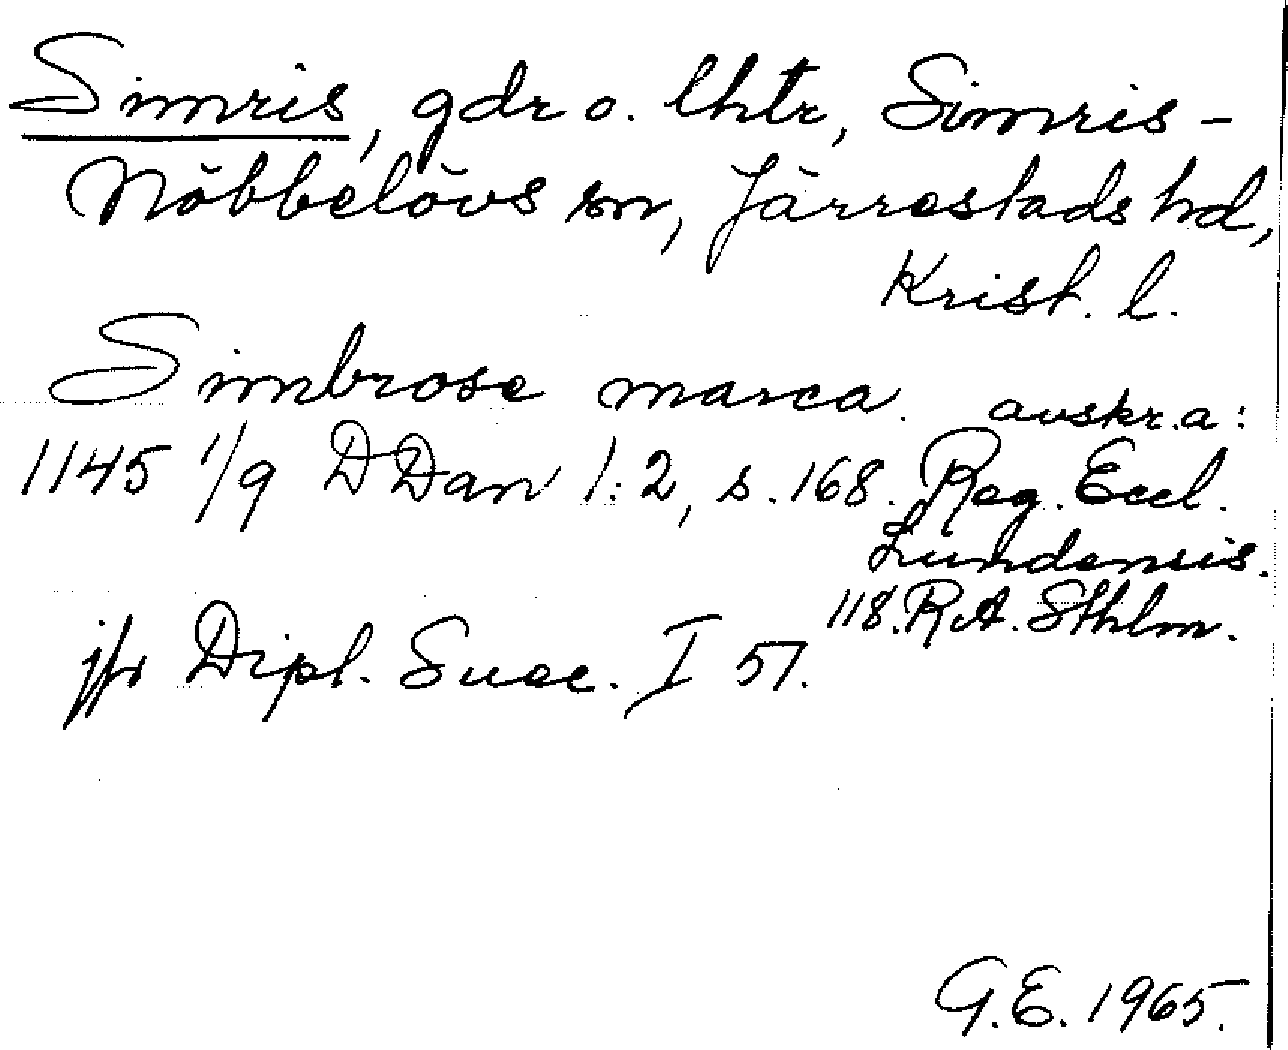 Simris, gdr o. lhtr, Simris-
Nöbbelövs sn, Järrestads hd,
Krist. l.
Simbrose marca. avskr.a:
1145 1/9 DDan 1:2, s. 168. Reg. Eccl.
Lundensis.
118. RA. Sthlm.
jfr Dipl. Suec. I 57.
G.E. 1965.